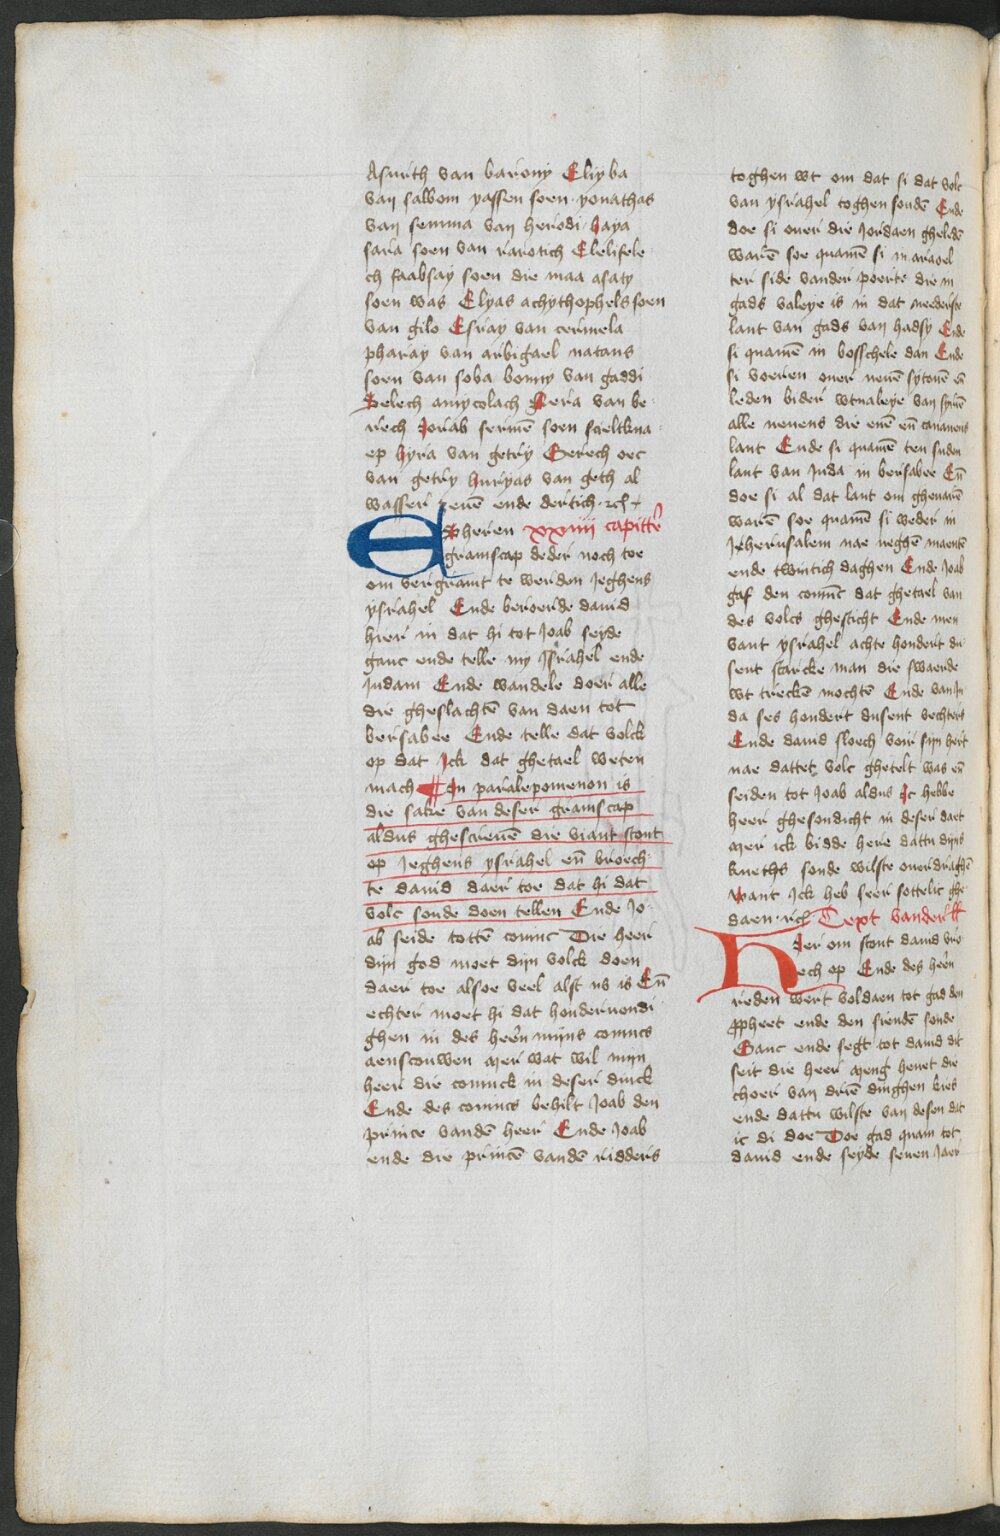 Asurth van barony Eliyba
van salbom yassen soen yonathas
van semma van herodi haya
sara soen van rarotich Elelifele
ch saabsay soen die maa asaty
soen was Elyas achythophels soen
van gilo Esray van cermela
pharay van arbigael natans
soen van soba bonny van gaddi
Selech amycolach Nera van be
rech Jorab sermē soen scieltkna
ep hyra van getry Gerech oec
van getry huryas van geth al
wasser zeuē ende dertich
xxiiij capittē
Es heren
gramscap deder noch toe
om vergramt te werden jeghens
ysrahel Ende beroerde dauid
hier in dat hi tot Joab seyde
ganc ende telle my Israhel ende
Judam Ende wandele doer alle
die gheslachtē van daen tot
bersabee Ende telle dat volck
op dat Ick dat ghetael weten
mach In paralepomenon is
die sake van deser gramscap
aldus ghescreuē die viant stont
op jeghens ysrahel eñ broech
te dauid daer toe dat hi dat
volc soude doen tellen Ende Jo
ab seide tottē coninc Die heer
dijn god moet dijn volck doen
daer toe alsoe veel alst nv is Eñ
echter moet hi dat hondertuoudi
ghen in des heren mijns conincs
aenscouwen mer wat wil mijn
heer die coninck in deser dinck
Ende des conincs behilt Joab den
prince vandē heer Ende Joab
ende die princē vandē ridders
toghen wt om dat si dat volc
van ysrahel toghen soudē Ende
doe si ouer die Jordaen gheledē
warē soe quamē si in aroel
ter side vander poerte die in
gads valeye is in dat nederste
lant van gads van hadsy Ende
si quamē in bosschele dan Ende
si voeren ouer neuē sytonē eñ
leden bider wtualeye van syruē
alle neuens die euē eñ cananeus
lant Ende si quamē ten suden
lant van Juda in bersabee Eñ
doe si al dat lant om ghevarē
warē soe quamē si weder in
Jherusalem nae neghē maentē
ende twintich daghen Ende Joab
gaf den coninc dat ghetael van
des volcs ghesticht Ende men
vant ysrahel achte hondert du
sent starcke man die swaerde
wt treckē mochtē Ende van Ju
da ses hondert dusent vechters
Ende dauid sloech voir sijn hert
nae dattet volc ghetelt was eñ
seiden tot Joab aldus Ic hebbe
heer ghesondicht in deser daet
mer ick bidde here dattu dijns
knechts sonde wilste ouerdraghē
want Ick heb seer sottelic ghe
daen Text vander
Hier om stont dauid vro
ech op Ende des herē
reden wert voldaen tot gad den
ppheet ende den siendē sonde
Ganc ende segt tot dauid dit
seit die heer meng heuet die
choer van driē dinghen kies
ende dattu wilste van desen dat
ic di doe Doe gad quam tot
dauid ende seyde seuen Jaer